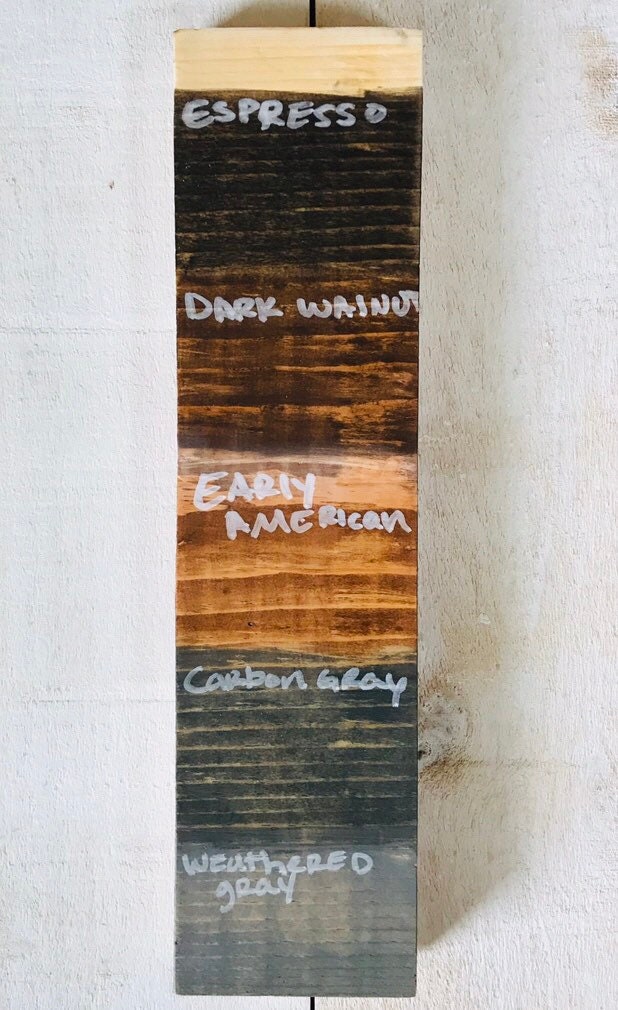 ESPRESSO
DARK WALNUT
EARLY
AMERICAN
Carbon GRay
WEathERED
gray